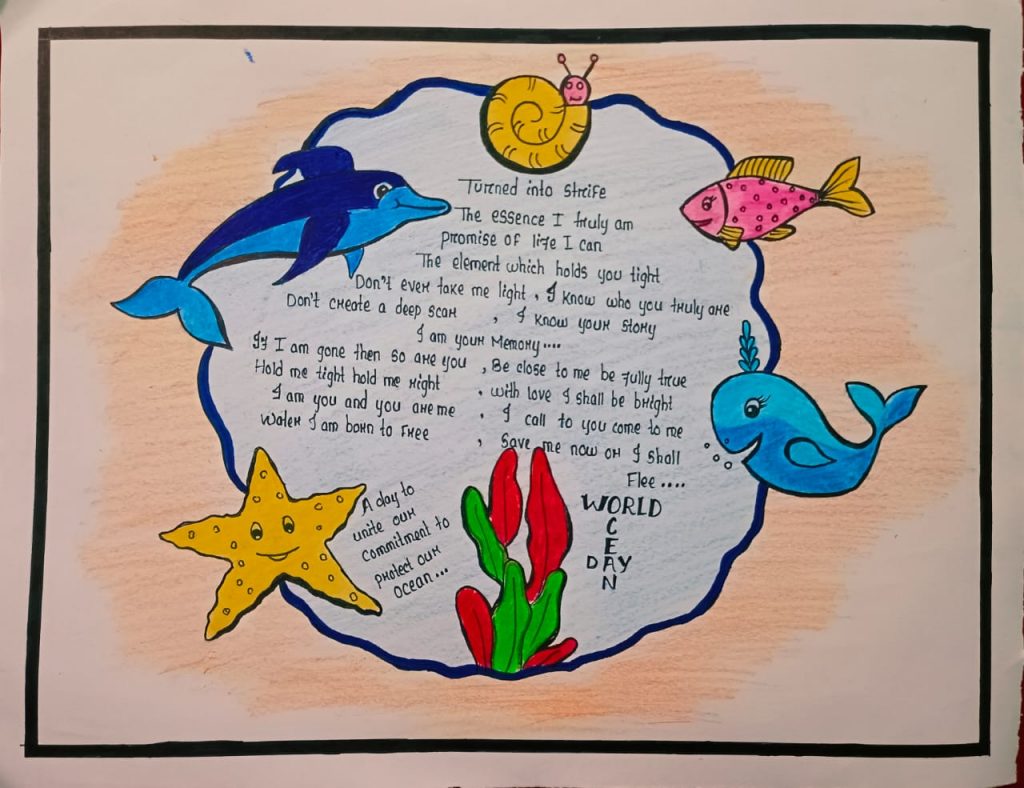 Turned into strife
The essence I truly am
promise of life I can
The element which holds you tight
Don't ever take me light , I know who you truly are
Don't create a deep scar , I know your story
I am your Memory....
If I am gone then so are you , Be close to me be fully true
Hold me tight hold me right . with love I shall be bright
I am you and you are me . I call to you come to me
Water I am born to Free , Save me now or I shall
Flee ....
A day to
unite our
commitment to
protect our
ocean...
WORLD
OCEAN
DAY